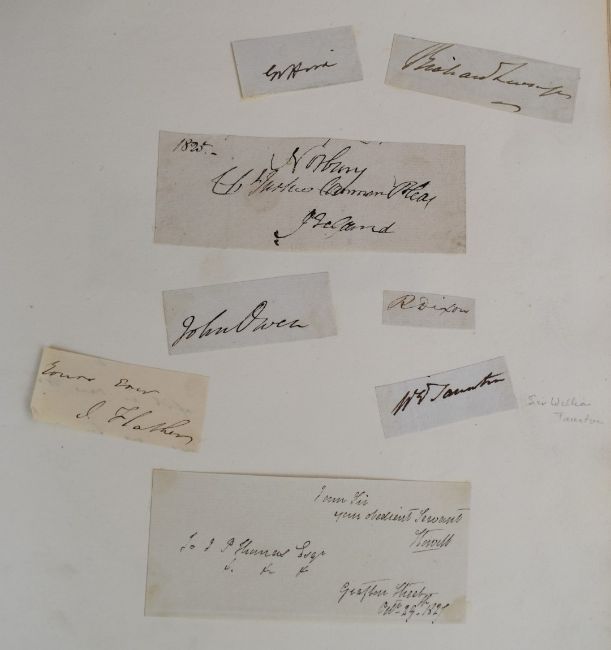 Richard
1825.-
Norbury
Ch Justice Common Pleas
Ireland
John Owen
R Dixon
Yours ever
J. Flather
W E Taunton
Sir William
Taunton
I am Sir
your obedient Servant
Stowell
To J P Thomas Esqr
&. &c &
Grafton Street
Octr 29th 182